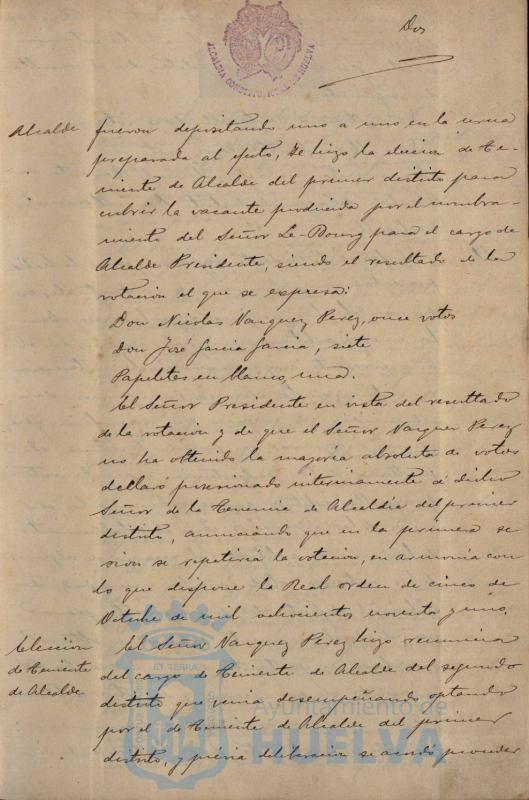 Dos
ALCALDIA CONSTITUCIONAL DE HUELVA
Alcalde
fueron depositando uno a uno en la urna
preparada al efecto, se hizo la eleccion de Te-
niente de Alcalde del primer distrito para
cubrir la vacante producida por el nombra-
miento del Señor Le-Bourg para el cargo de
Alcalde Presidente, siendo el resultado de la
votacion el que se expresa:
Don Nicolas Vazquez Perez, once votos
Don José Garcia Garcia, siete
Papeletas en blanco, una.
El Señor Presidente en vista del resultado
de la votacion y de que el Señor Vazquez Perez
no ha obtenido la mayoría absoluta de votos
declaró posesionado interinamente á dicho
Señor de la Tenencia de Alcaldía del primer
distrito, anunciando que en la primera se
sion se repetiria la votacion, en armonía con
lo que dispone la Real orden de cinco de
Octubre de mil ochocientos noventa y uno.
Eleccion
de Teniente
de Alcalde
El Señor Vazquez Perez hizo renuncia
del cargo de Teniente de Alcalde del segundo
distrito que venia desempeñando optando
por el de Teniente de Alcalde del primer
distrito, y previa deliberacion se acordó proceder
ET TERRAE
Ayuntamiento de
HUELVA